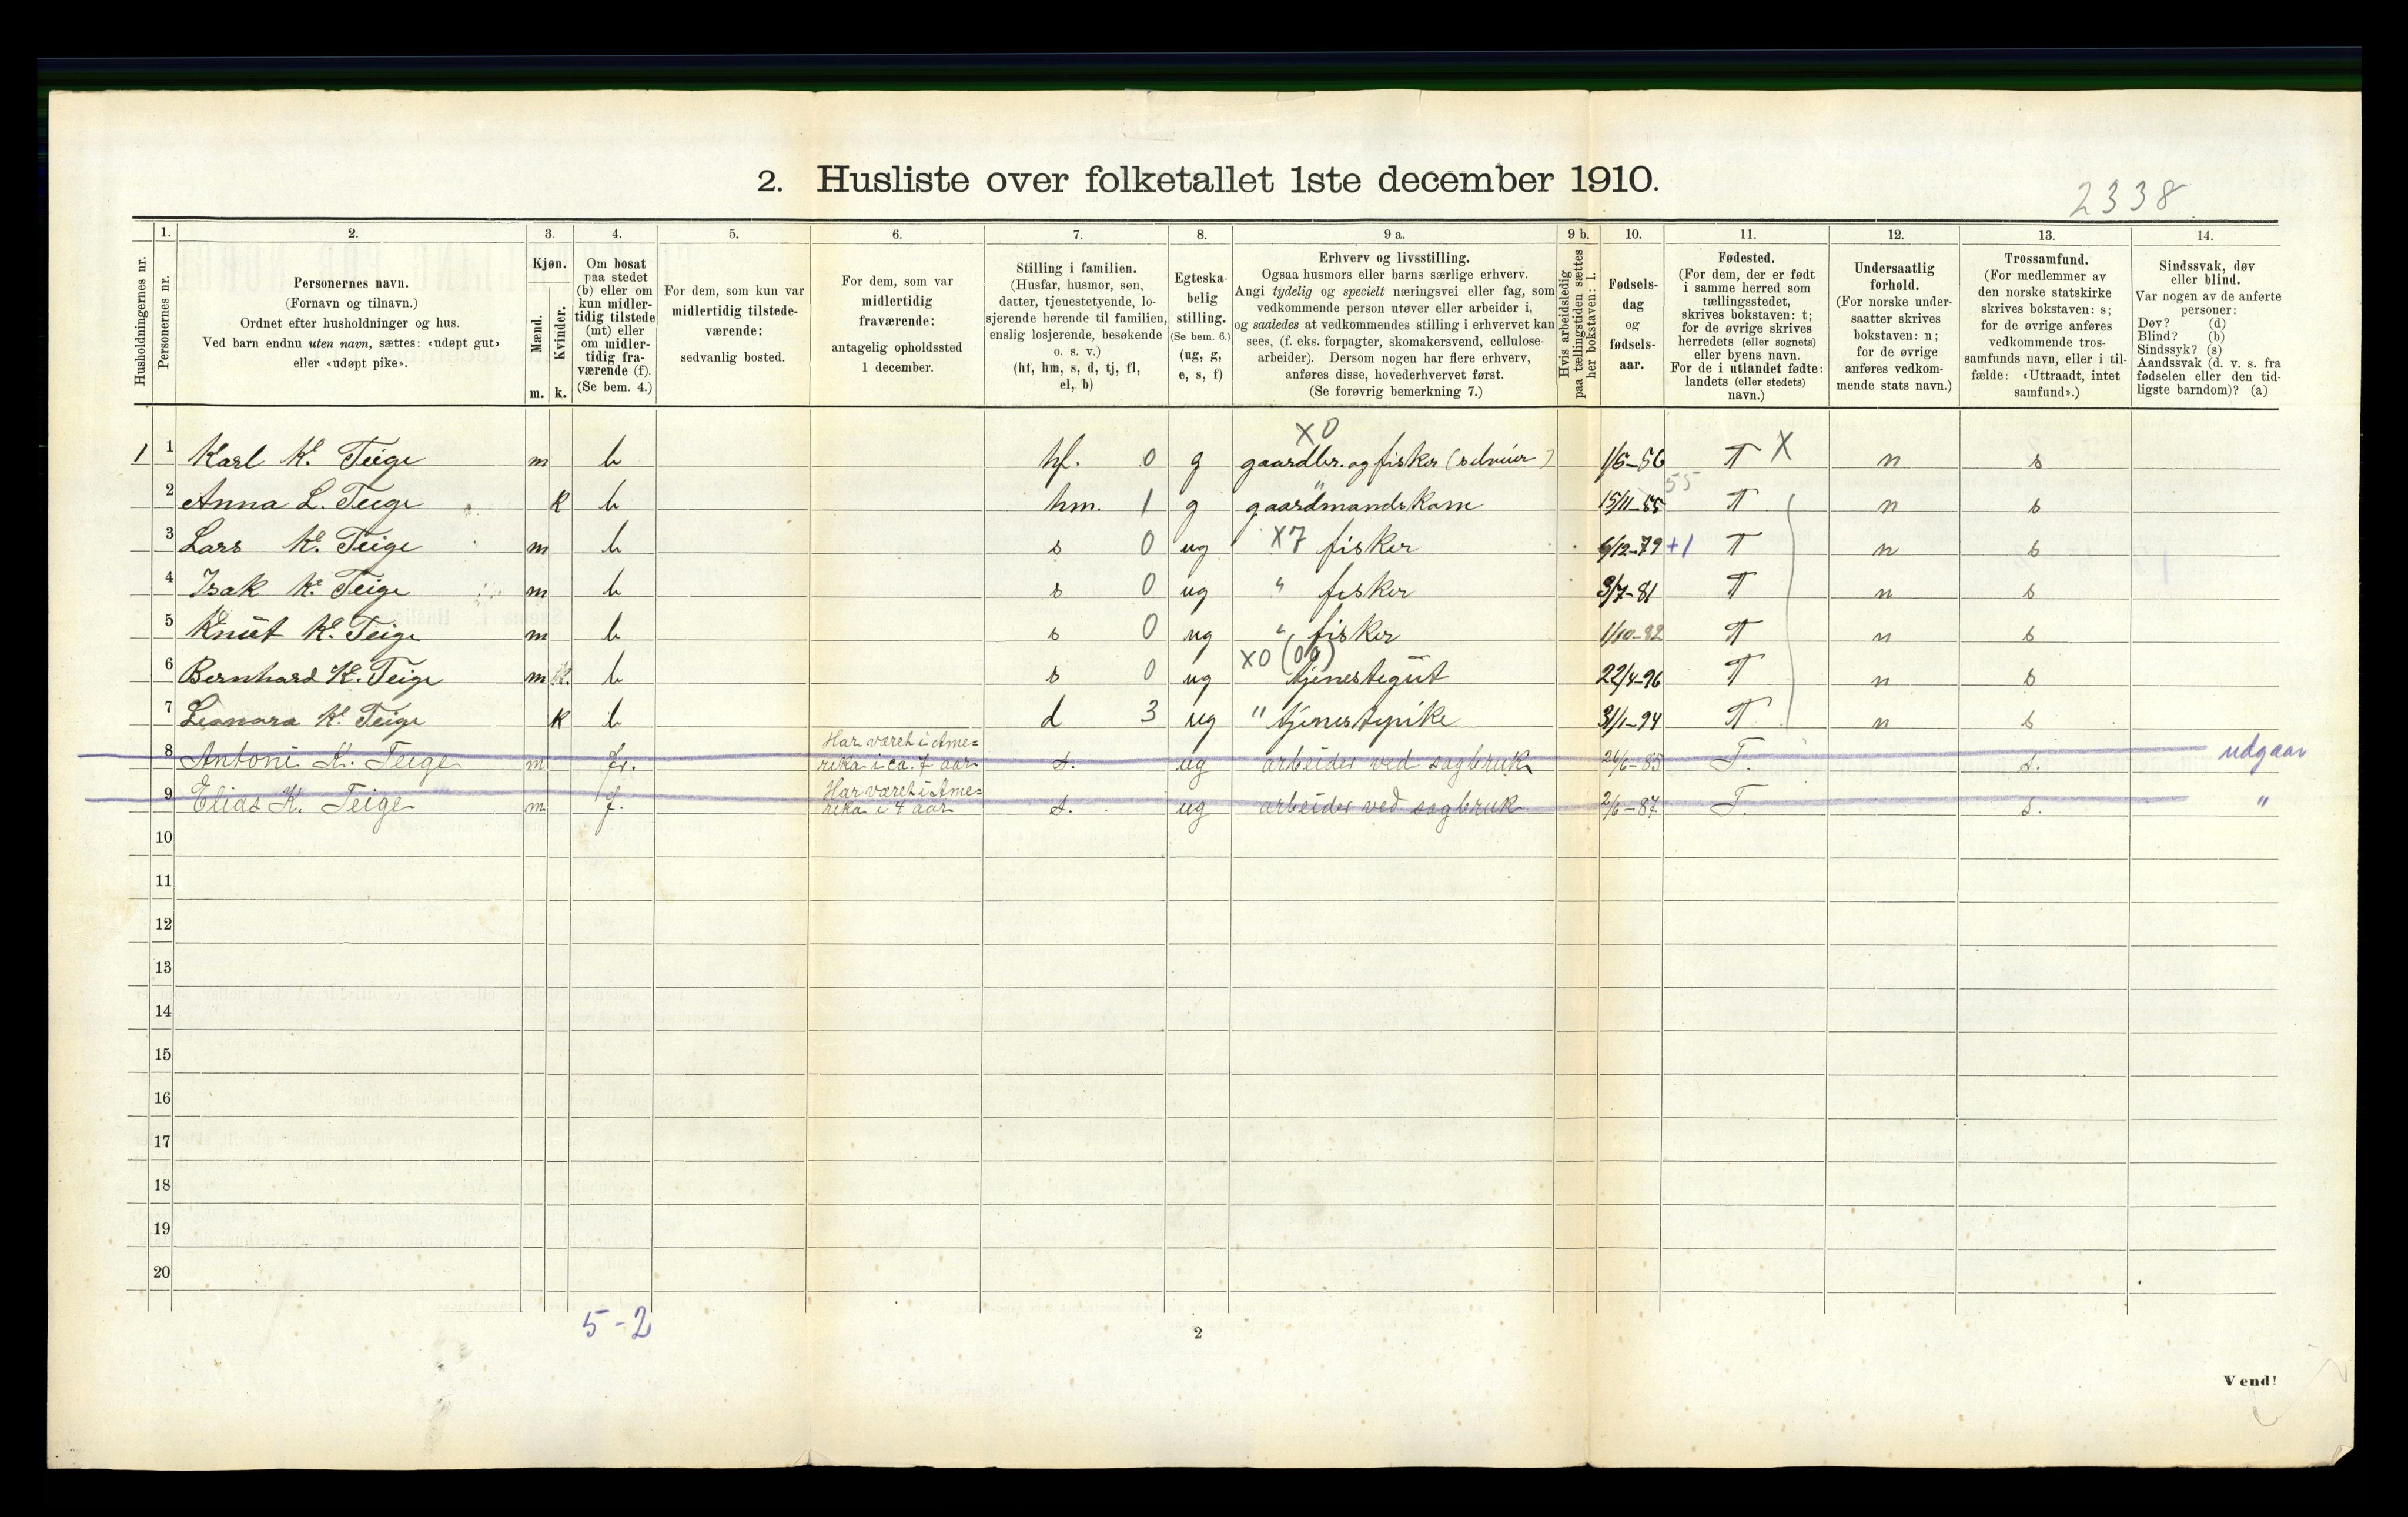 2. Husliste over folketallet 1ste december 1910.
2338
Husholdningernes nr.
1.
Personernes nr.
2.
Personernes navn.
(Fornavn og tilnavn.)
Ordnet efter husholdninger og hus.
Ved barn endnu uten navn, sættes: «udøpt gut»
eller «udøpt pike».
3.
Kjøn.
Mænd.
Kvinder.
m. k.
4.
Om bosat
paa stedet
(b) eller om
kun midler-
tidig tilstede
(mt) eller
om midler-
tidig fra-
værende (f).
(Se bem. 4.)
5.
For dem, som kun var
midlertidig tilstede-
værende:
sedvanlig bosted.
6.
For dem, som var
midlertidig
fraværende:
antagelig opholdssted
1 december.
7.
Stilling i familien.
(Husfar, husmor, søn,
datter, tjenestetyende, lo-
sjerende hørende til familien,
enslig losjerende, besøkende
o. s. v.)
(hf, hm, s, d, tj, fl,
el, b)
8.
Egteska-
belig
stilling.
(Se bem. 6.)
(ug, g,
e, s, f)
9 a.
Erhverv og livsstilling.
Ogsaa husmors eller barns særlige erhverv.
Angi tydelig og specielt næringsvei eller fag, som
vedkommende person utøver eller arbeider i,
og saaledes at vedkommendes stilling i erhvervet kan
sees, (f. eks. forpagter, skomakersvend, cellulose-
arbeider). Dersom nogen har flere erhverv,
anføres disse, hovederhvervet først.
(Se forøvrig bemerkning 7.)
9 b.
Hvis arbeidsledig
paa tællingstiden sættes
her bokstaven: l.
10.
Fødsels-
dag
og
fødsels-
aar.
11.
Fødested.
(For dem, der er født
i samme herred som
tællingsstedet,
skrives bokstaven: t;
for de øvrige skrives
herredets (eller sognets)
eller byens navn.
For de i utlandet fødte:
landets (eller stedets)
navn.)
12.
Undersaatlig
forhold.
(For norske under-
saatter skrives
bokstaven: n;
for de øvrige
anføres vedkom-
mende stats navn.)
13.
Trossamfund.
(For medlemmer av
den norske statskirke
skrives bokstaven: s;
for de øvrige anføres
vedkommende tros-
samfunds navn, eller i til-
fælde: «Uttraadt, intet
samfund».)
14.
Sindssvak, døv
eller blind.
Var nogen av de anførte
personer:
Døv? (d)
Blind? (b)
Sindssyk? (s)
Aandssvak (d. v. s. fra
fødselen eller den tid-
ligste barndom)? (a)
X0
1 1 Karl K. Teige m b hf. 0 g gaardbr. og fisker (selveier) 1/5-56 T X n s
55
2 Anna L. Teige k b hm. 1 g " gaardmandskone 15/11-55 T n s
3 Lars K. Teige m b s 0 ug X7 fisker 6/12-79 +1 T n s
4 Isak K. Teige m b s 0 ug " fisker 3/7-81 T n s
5 Knut K. Teige m b s 0 ug " fisker 1/10-82 T n s
X0 (00)
6 Bernhard K. Teige m k. b s 0 ug tjenestegut 22/4-96 T n s
7 Leonora K. Teige k b d 3 ug " tjenestepike 31/1-94 T n s
Har været i Ame=
8 Antoni K. Teige m fr. rika i ca. 7 aar s. ug arbeider ved sagbruk 26/6-85 T. s. udgaar
Har været i Ame=
9 Elias K. Teige m f. rika i 4 aar s. ug arbeider ved sagbruk 2/6-87 T. s. "
10
11
12
13
14
15
16
17
18
19
20
5-2
2
Vend!